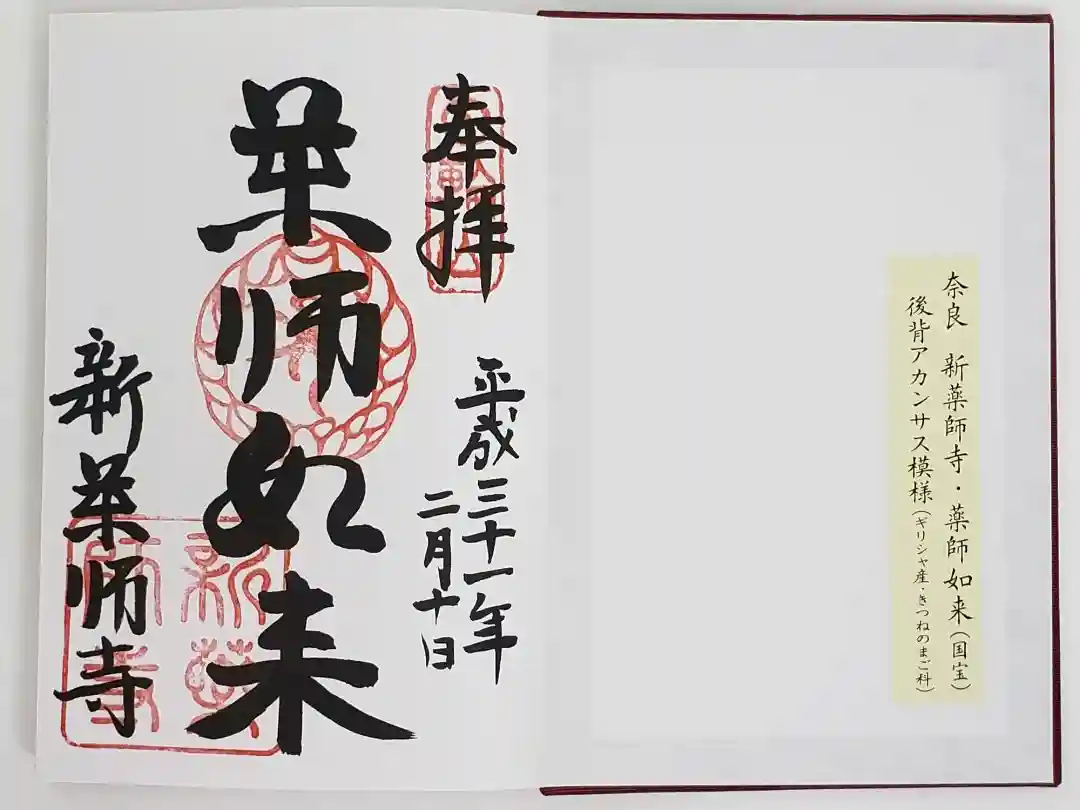 奈良 新薬師寺・薬師如来(国宝)
後背アカンサス模様(ギリシャ産・きつねのまご科)
奉拝
平成三十一年
二月十日
薬師如来
新薬師寺